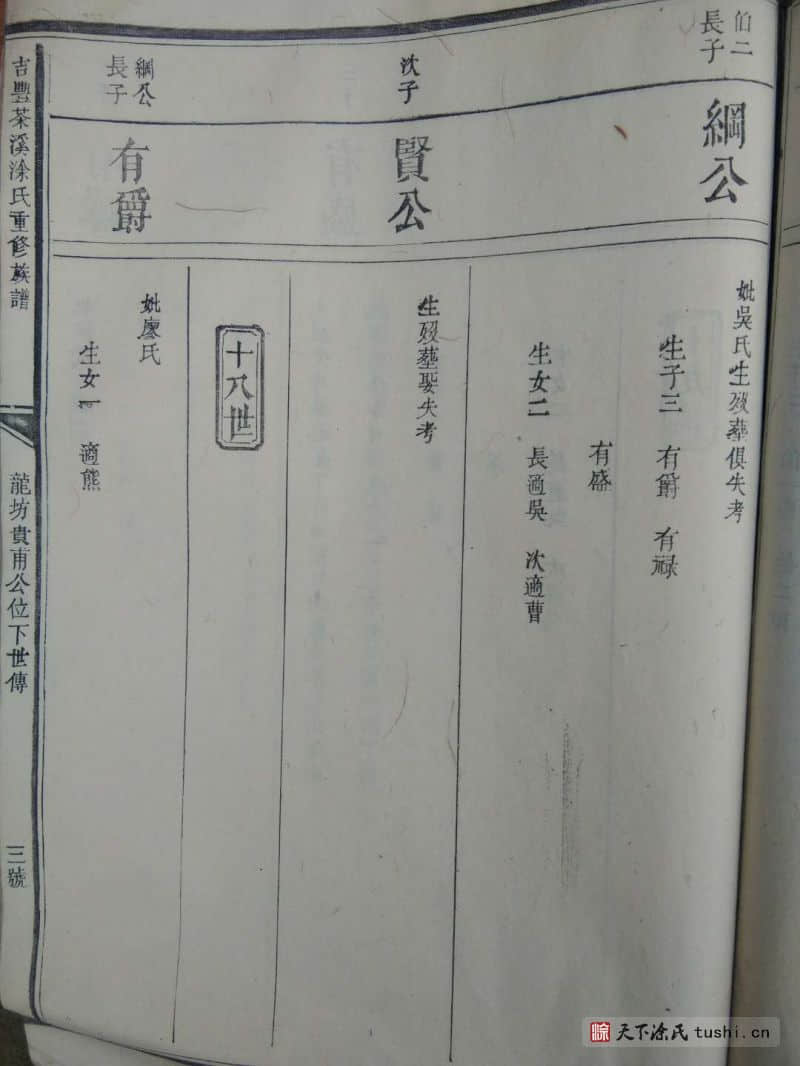 伯二
長子
綱公
妣吳氏生歿葬俱失考
生子三 有爵 有禄
有盛
生女二 長適吳 次適曹
沈子
賢公
生歿葬娶失考
十八世
綱公
長子
有爵
妣廖氏
生女一 適熊
吉豐茶溪涂氏重修族譜
龍坊貴甫公位下世傳
三號
天下涂氏 tushi.cn